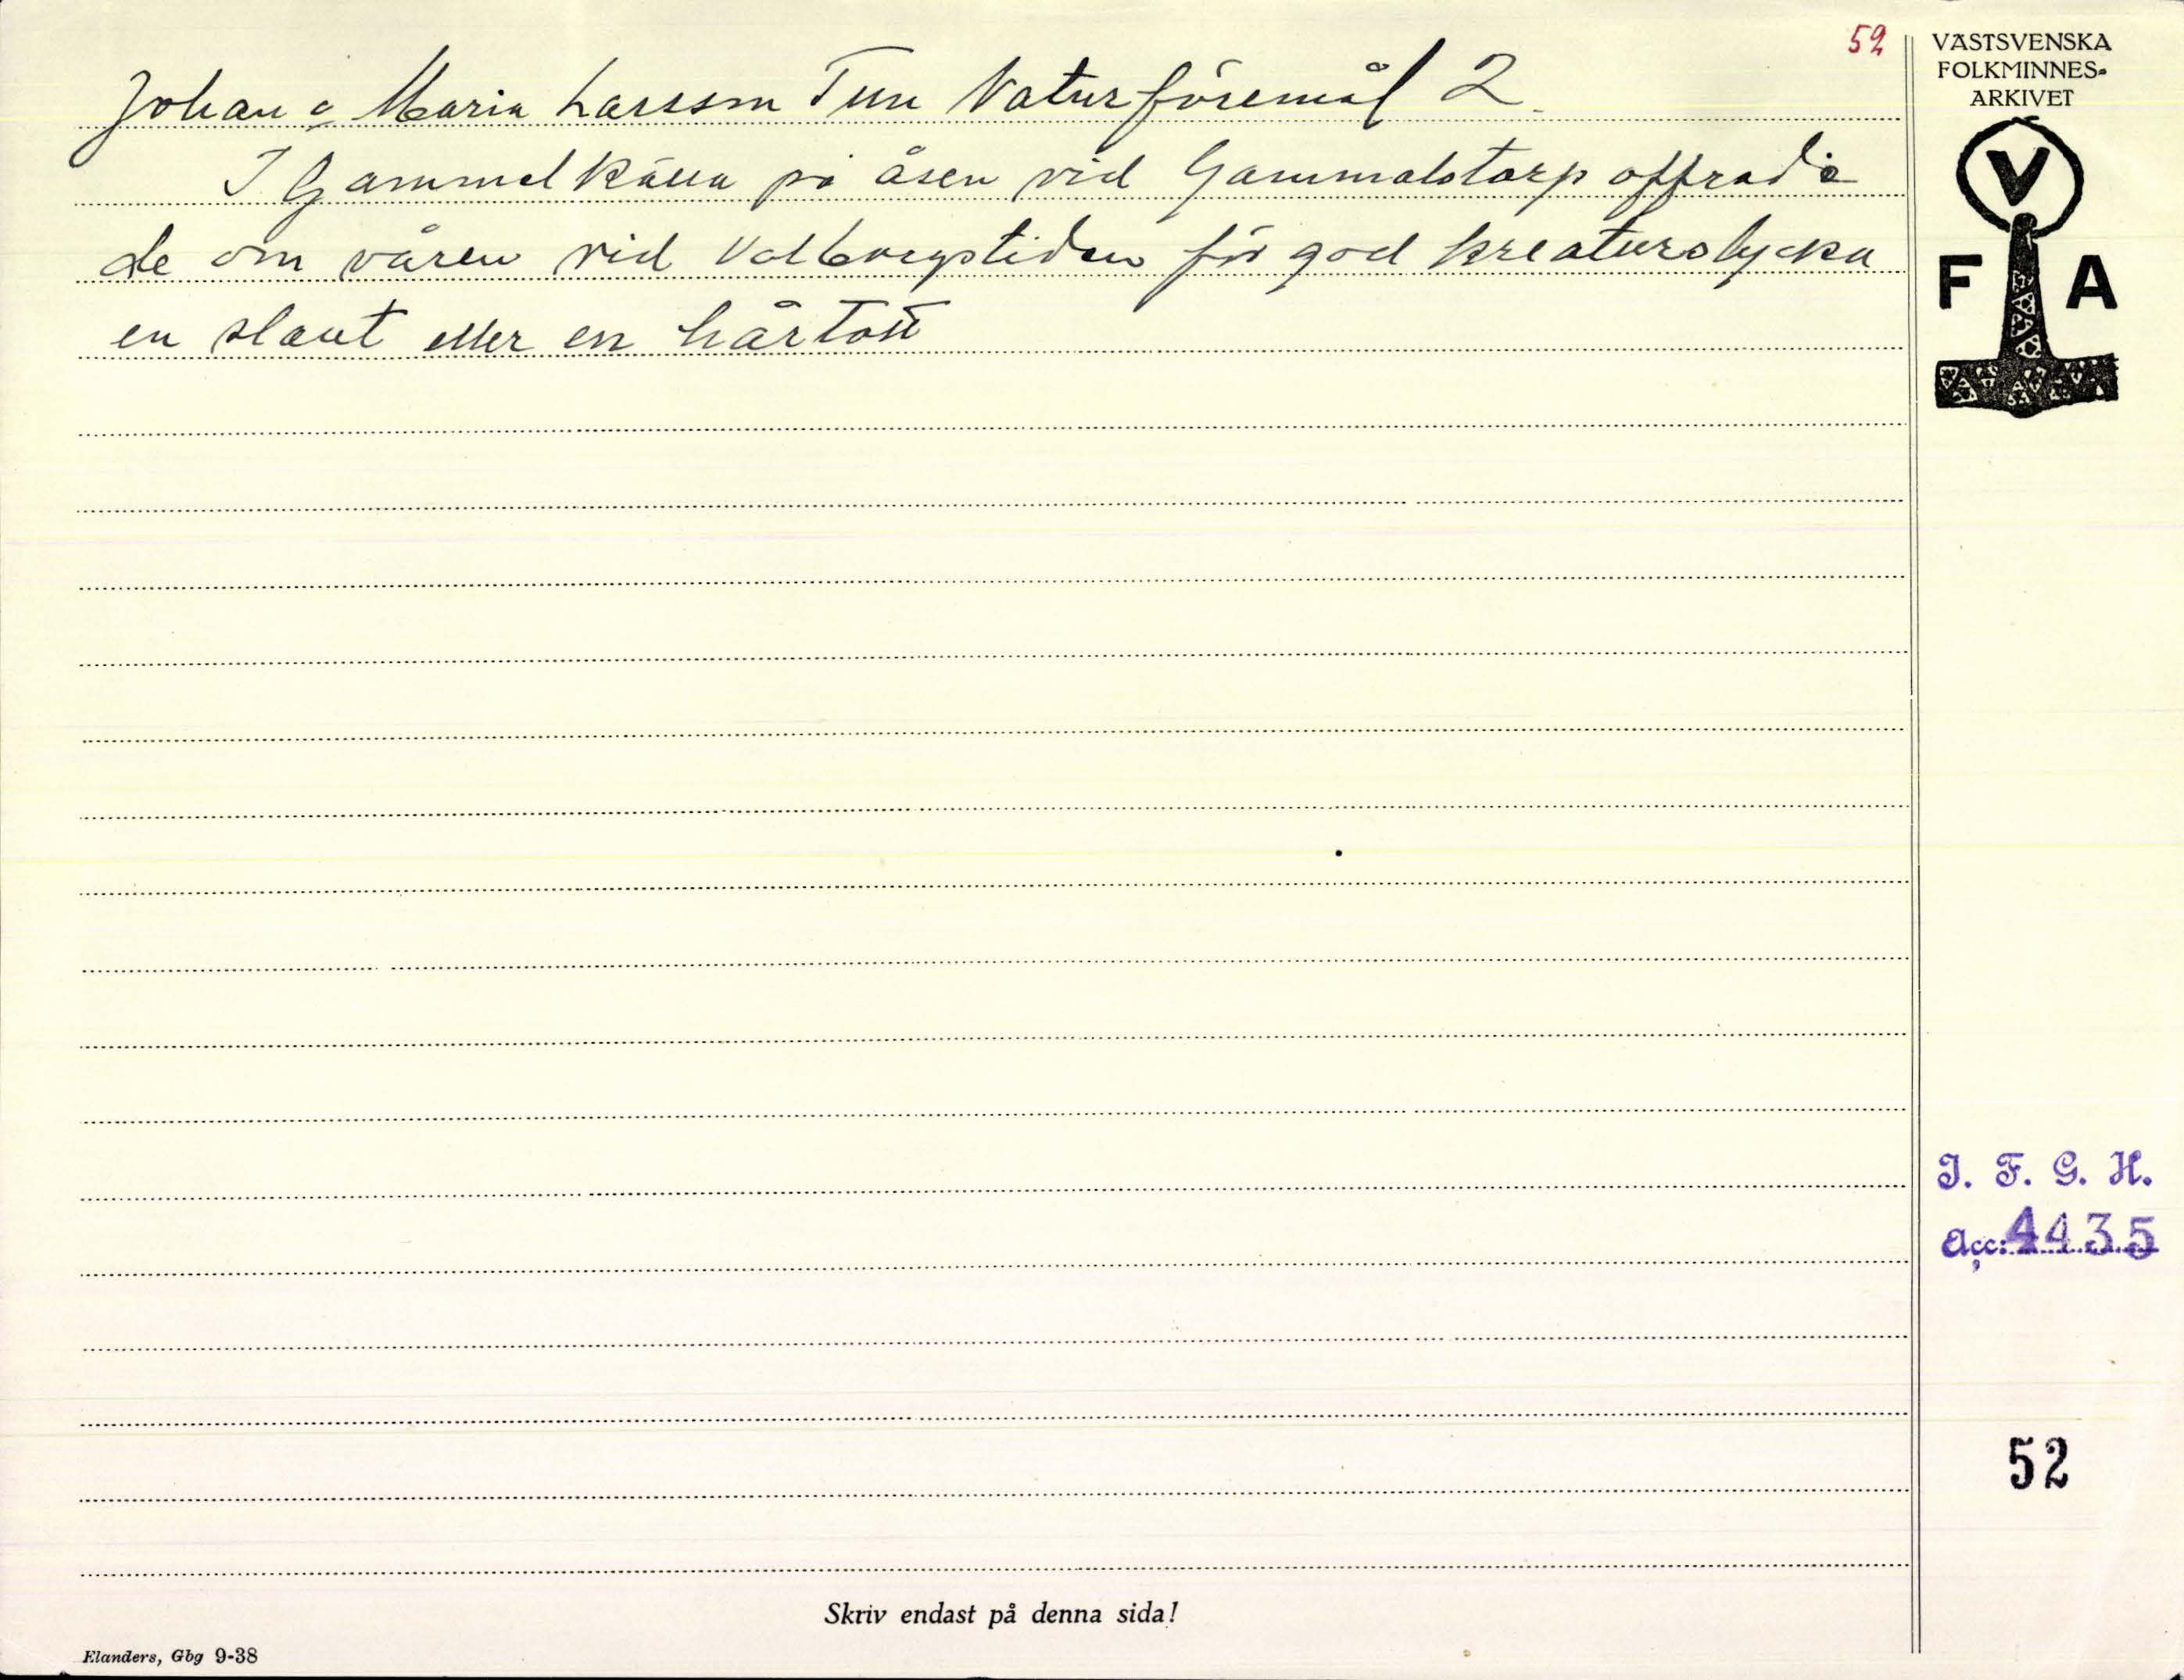 52
Johan o Maria Larsson Tun Naturföremål 2.
I Gammelkälla på åsen vid Gammalstorp offrade
de om våren vid Valborgstiden för god kreaturslycka
en slant eller en hårtott
VÄSTSVENSKA
FOLKMINNES-
ARKIVET
V
F A
I. F. G. H.
Acc: 4435
52
Skriv endast på denna sida!
Elanders, Gbg 9-38